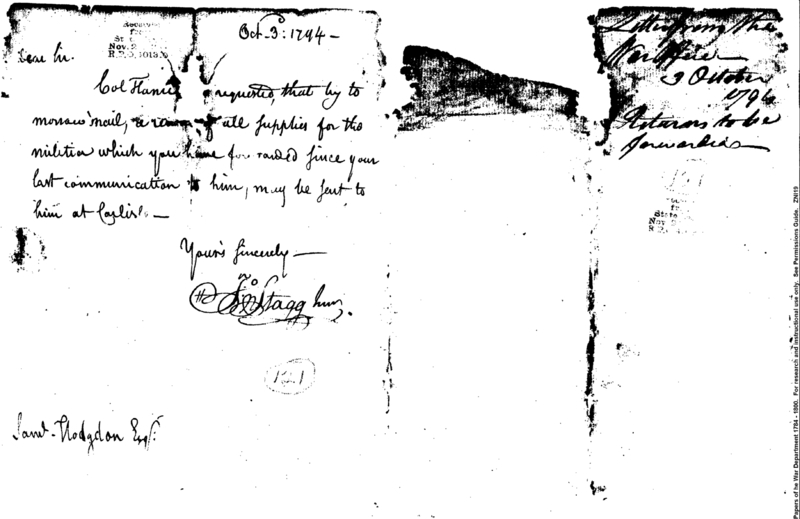 Oct. 3: 1794 —
Dear Sir.
Col requested, that by to
morrow's mail, a of all supplies for the
militia which you have forwarded since your
last communication to him, may be sent to
him at Carlisle —
Your's sincerely —
Jno Stagg Junr.
121
Saml. Hodgdon Esqr.
Received
St
Nov. 2
Letter from the
War Office
3 October
1794
Returns to be
forwarded
121
State
Nov. 2
Papers of he War Department 1784 - 1800. For research and instructional use only. See Permissions Guide. ZNI19